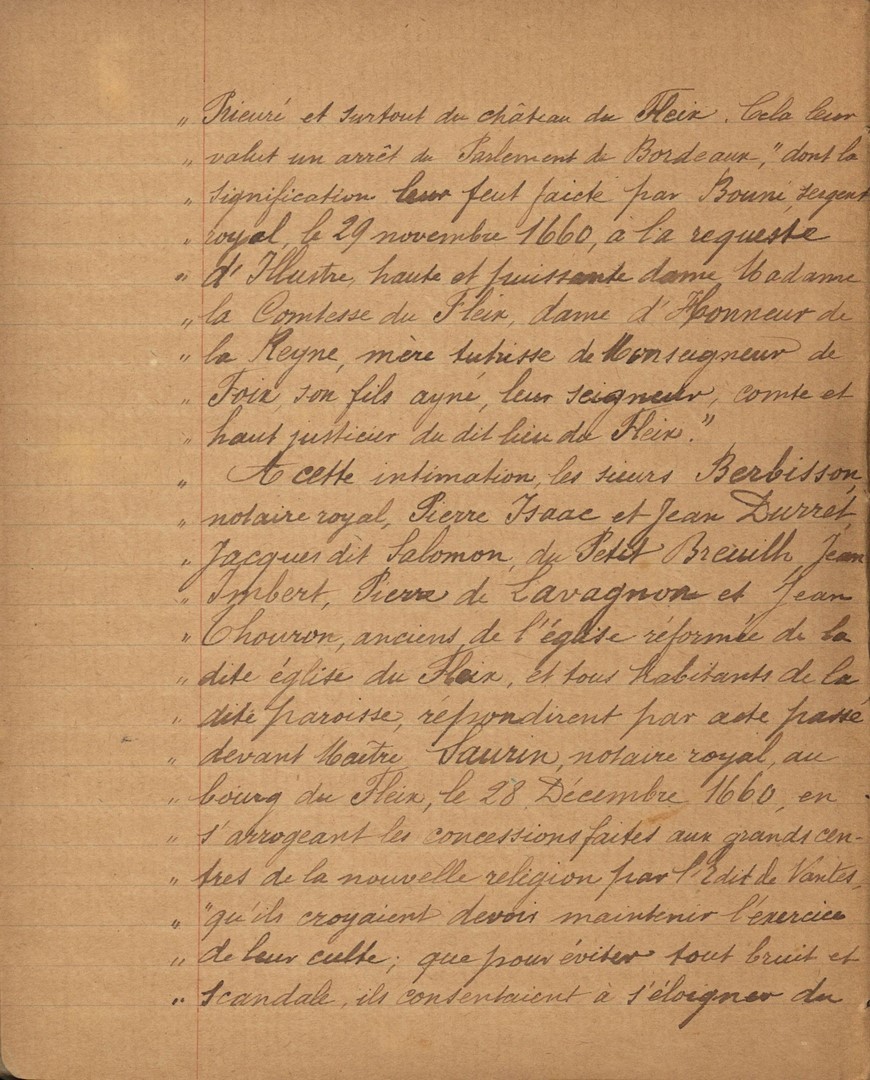 „ Prieuré et surtout du château du Fleix. Cela leur
„ valut un arrêt du Parlement de Bordeaux, " dont la
„ signification leur feut faicte par Bouni, sergent
„ royal, le 29 novembre 1660, à la requeste
„ d'Illustre, haute et puissante dame Madame
„ la Comtesse du Fleix, dame d'Honneur de
„ la Reyne, mère tutrisse de Monseigneur de
„ Foix, son fils ayné, leur seigneur, comte et
„ haut justicier du dit lieu du Fleix."
„ A cette intimation, les sieurs Berbisson,
„ notaire royal, Pierre Isaac et Jean Durret,
„ Jacques dit Salomon, du Petit Breuilh, Jean
„ Imbert, Pierre de Lavagnon et Jean
„ Chouron, anciens de l'église réformée de la
„ dite église du Fleix, et tous habitants de la
„ dite paroisse, repondirent par acte passé
„ devant Maître Saurin, notaire royal, au
„ bourg du Fleix, le 28 Décembre 1660, en
„ s'arrogeant les concessions faites aux grands cen-
„ tres de la nouvelle religion par l'Edit de Nantes,
„ "qu'ils croyaient devoir maintenir l'exercice
„ de leur culte; que pour éviter tout bruit et
„ scandale, ils consentaient à s'éloigner du